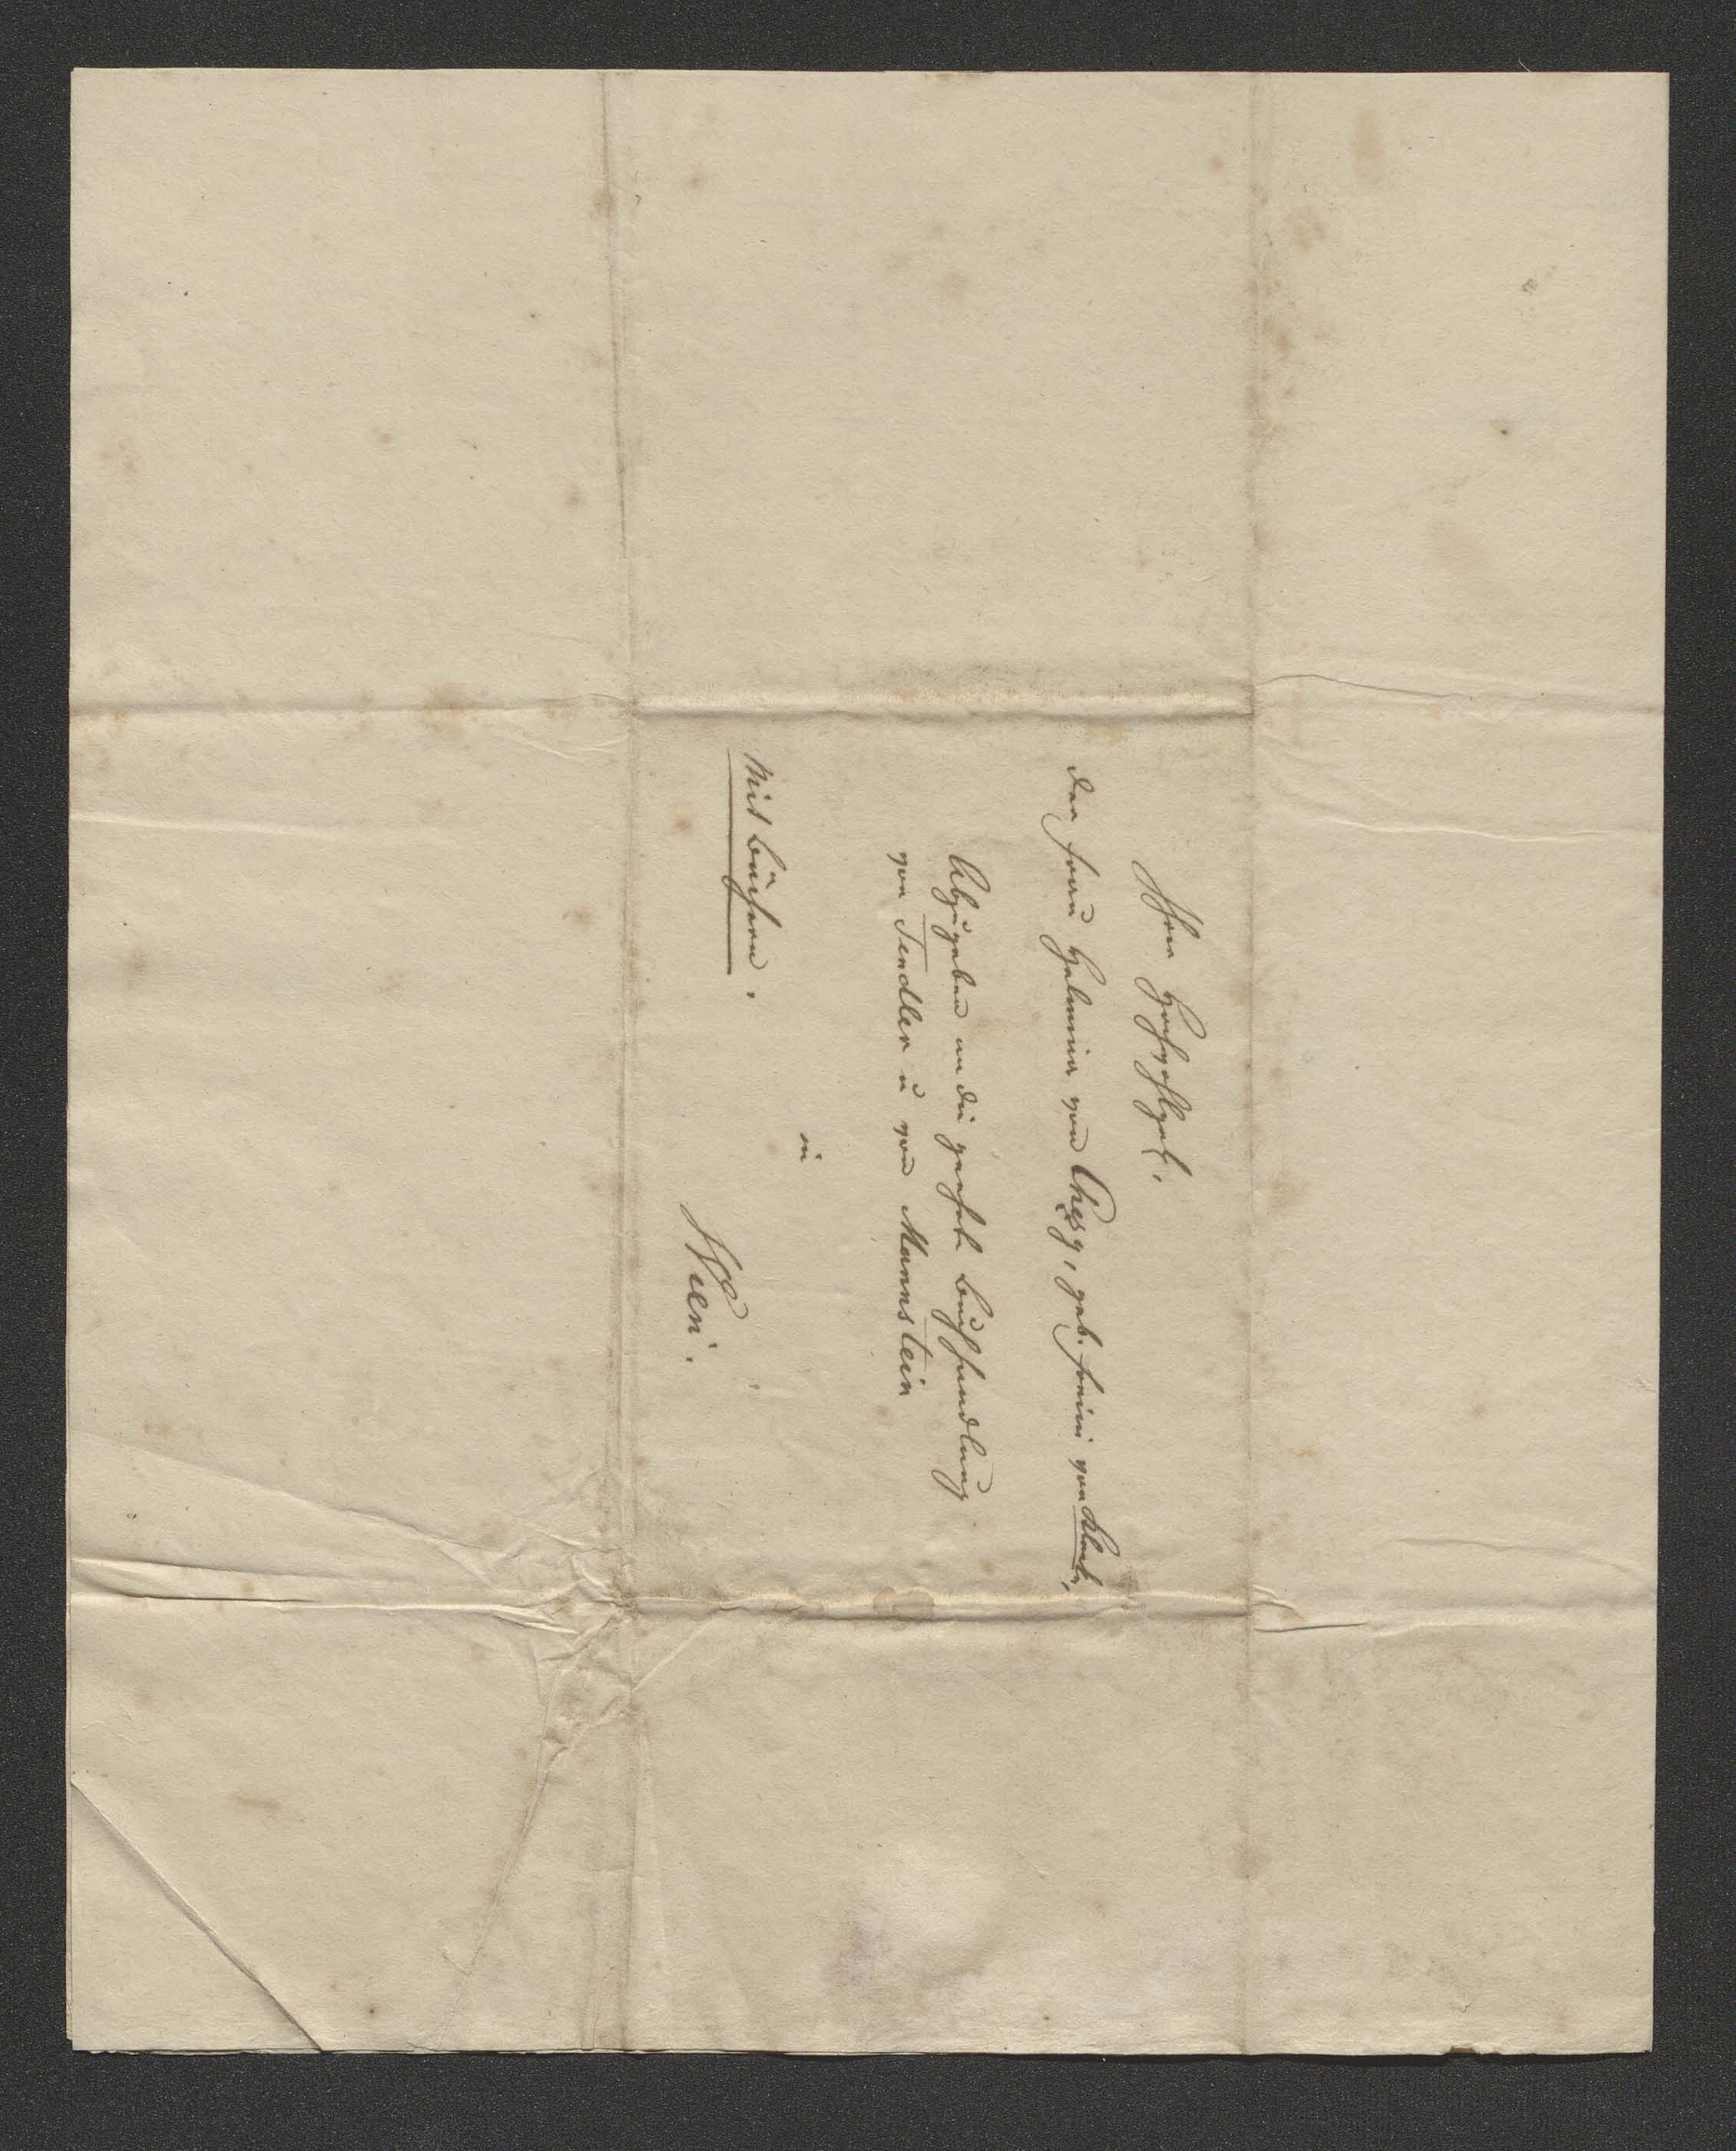 Ihro Hochwohlgeb.
der Frau Helmina von Chezy, geb. Freiin von Klenk,
Abzugeben an die geehrte Buchhandlung
von Tendler u von Mannstein
in
Wien.
Mit Büchern.